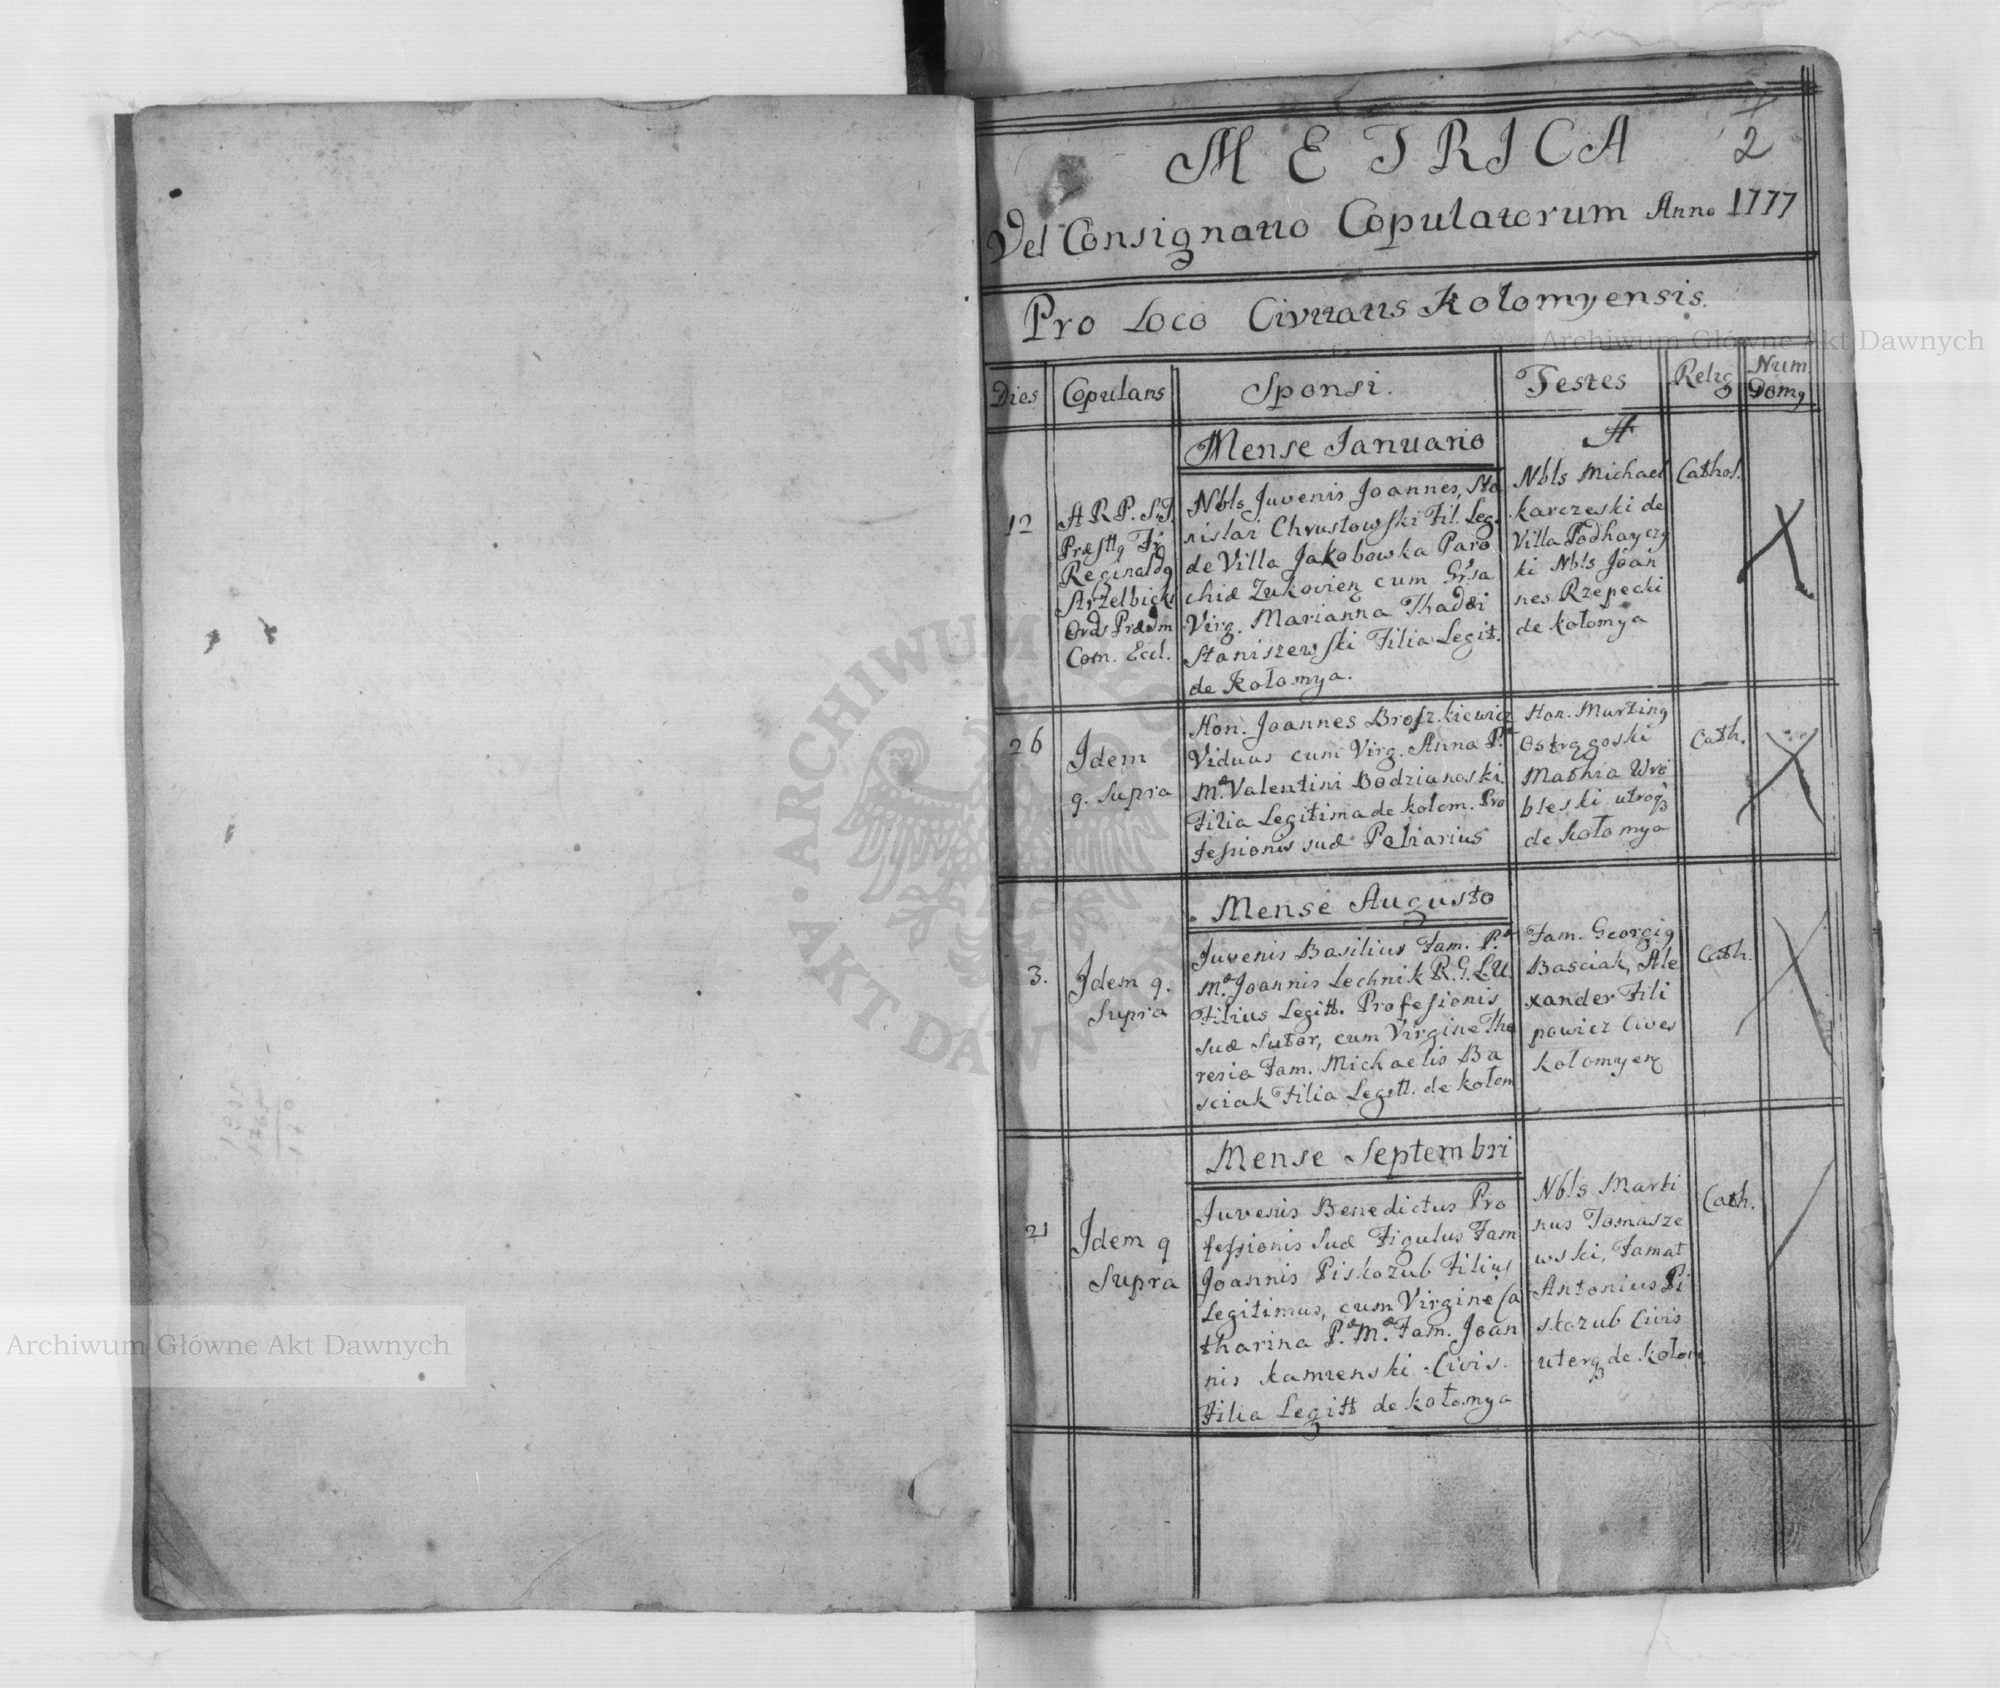 METRICA
2
Vel Consignatio Copulatorum Anno 1777
Pro Loco Civitatis Kołomyensis.
Dies
Copulans
Sponsi.
Testes
Relig
Num
Domq
Mense Ianuario
12
A R P. S.T.
Præsttq Fr
Reginaldq
Strzelbicki
Ords Prædm
Com. Eccl.
Nbls Juvenis Joannes, Sta
nislai Chrustowski Fil. Leg.
de Villa Jakobowka Paro
chiæ Zukovien cum Grsa
Virg. Marianna Thadæi
Staniszewski Filia Legit.
de Kołomya.
Nbls Michael
karczeski de
Villa Podhayczy
ki Nbls Joan
nes Rzepecki
de kołomya
Cathol.
26
Idem
q. supra
Hon. Joannes Broszkiewicz
Viduus cum Virg. Anna P.
M. Valentini Bodzianoski
Filia Legitima de kołom. Pro
fessionis suæ Peliarius
Hon. Martinq
Ostrągoski
Mathia Wró
bleski utroqz
de kołomya
Cath.
Mense Augusto
3.
Idem q.
supra
Juvenis Basilius Fam. P.
M. Joannis Lechnik R. G. L. U
Filius Legitt. Professionis
suæ sutor, cum Virgine The
resia Fam. Michaelis Ba
sciak Filia Legitt. de kołom
Fam. Georgiq
Basciak, Ale
xander Fili
powicz Cives
kołomyen
Cath.
Mense Septembri
21
Idem q
supra
Juvenis Benedictus Pro
fessionis suæ Figulus Fam
Joannis Piskozub Filius
Legitimus, cum Virgine Ca
tharina P. M. Fam. Joan
nis kamienski Civis.
Filia Legitt de kołomya
Nbls Marti
nus Tomasze
wski, Famat
Antonius Pi
skozub Civis
uterqz de kołom
Cath.
Archiwum Główne Akt Dawnych
ARCHIWUM GŁÓWNE AKT DAWNYCH
Archiwum Główne Akt Dawnych